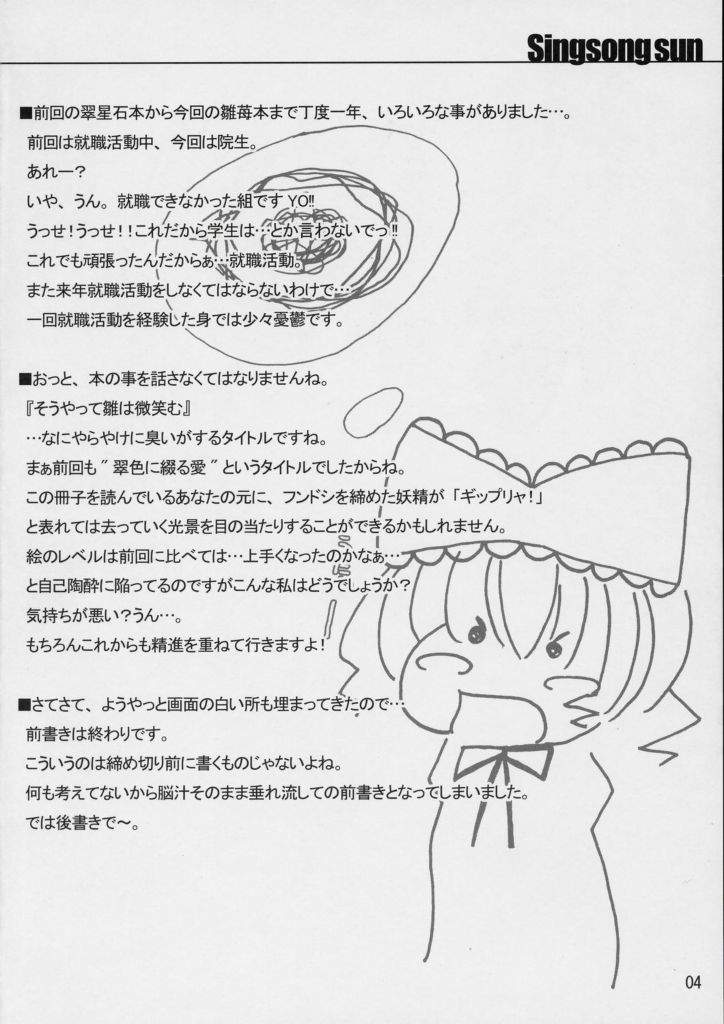 Singsong sun
■前回の翠星石本から今回の雛苺本まで丁度一年、いろいろな事がありました…。
前回は就職活動中、今回は院生。
あれー？
いや、うん。就職できなかった組です YO!!
うっせ！うっせ！！これだから学生は…とか言わないでっ!!
これでも頑張ったんだからぁ…就職活動。
また来年就職活動をしなくてはならないわけで…
一回就職活動を経験した身では少々憂鬱です。
■おっと、本の事を話さなくてはなりませんね。
『そうやって雛は微笑む』
…なにやらやけに臭いがするタイトルですね。
まぁ前回も〝翠色に綴る愛〟というタイトルでしたからね。
この冊子を読んでいるあなたの元に、フンドシを締めた妖精が「ギップリャ！」
と表れては去っていく光景を目の当たりすることができるかもしれません。
絵のレベルは前回に比べては…上手くなったのかなぁ…
と自己陶酔に陥ってるのですがこんな私はどうでしょうか？
気持ちが悪い？うん…。
もちろんこれからも精進を重ねて行きますよ！
■さてさて、ようやっと画面の白い所も埋まってきたので…
前書きは終わりです。
こういうのは締め切り前に書くものじゃないよね。
何も考えてないから脳汁そのまま垂れ流しての前書きとなってしまいました。
では後書きで～。
04